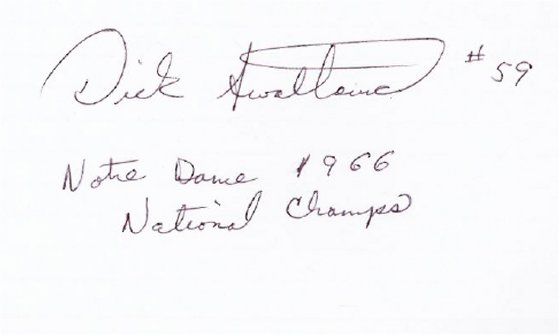 Dick Swatland #59
Notre Dame 1966
National Champs